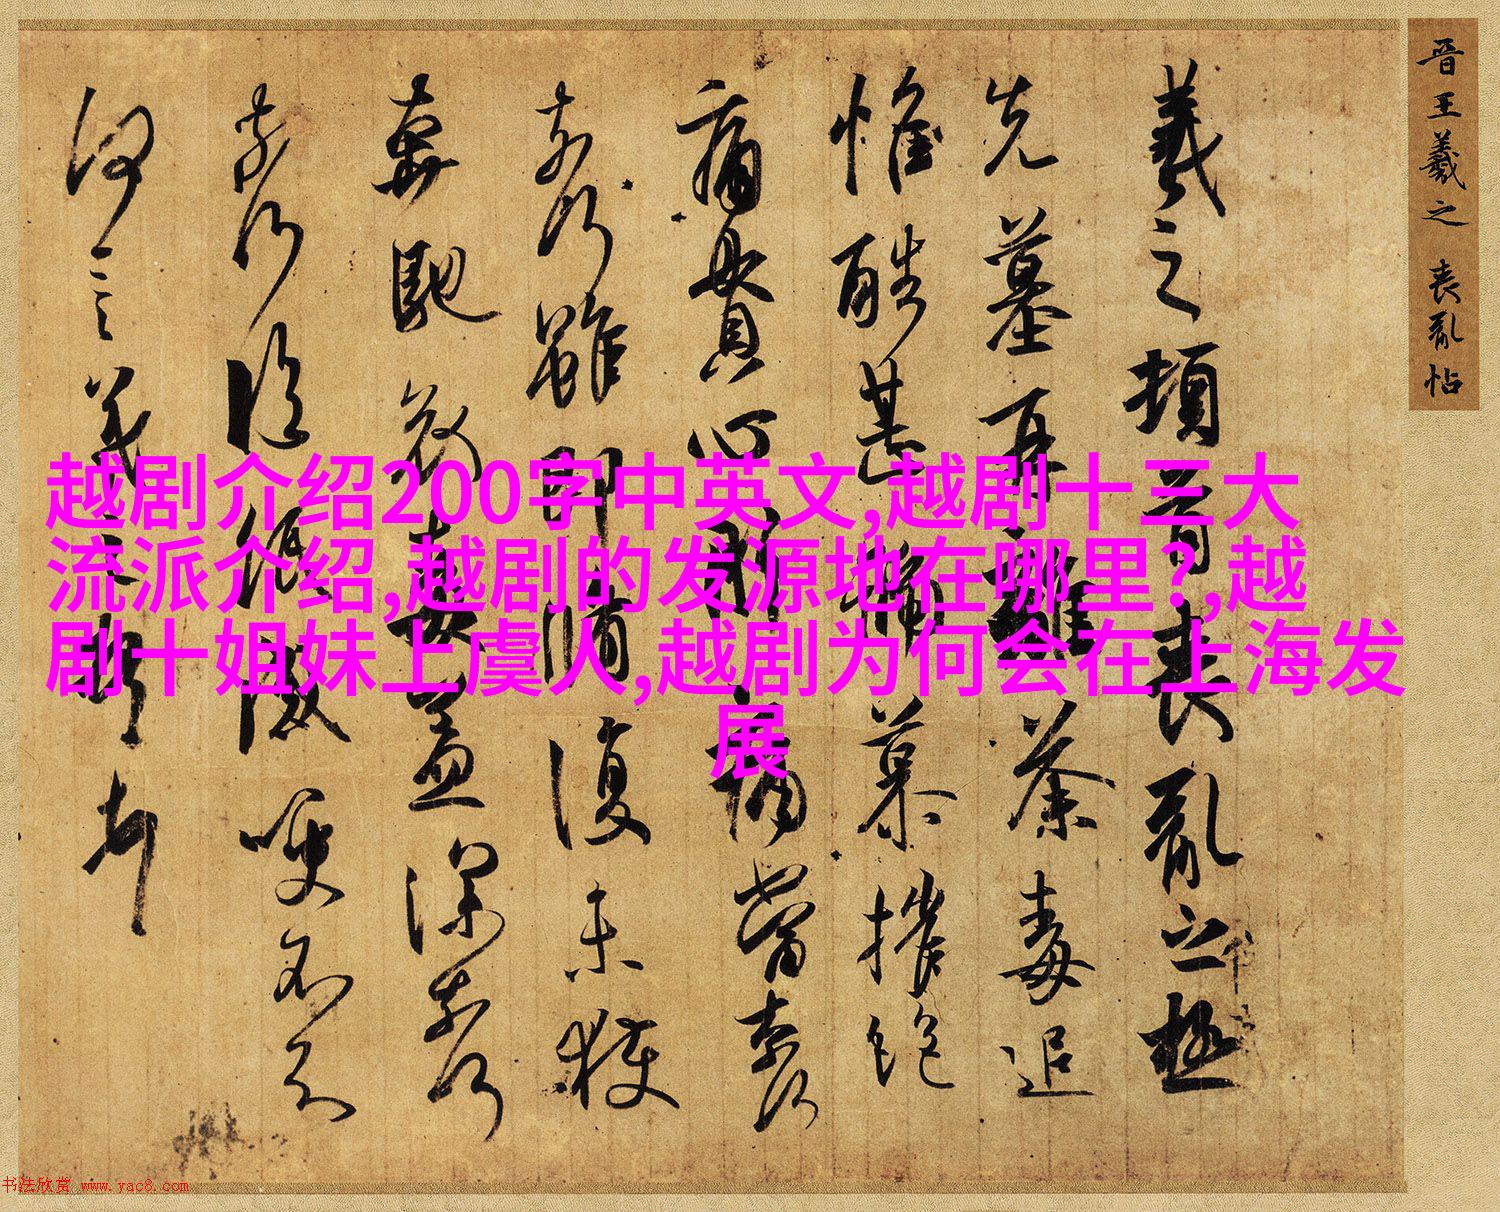 晋王羲之 丧乱帖
羲之顿首丧乱之极
先墓再离荼毒追
惟酷甚号慕摧绝
痛贯心肝痛当奈何
奈何虽即修复未获
奔驰哀毒益深奈何
奈何临纸感哽不知
何言羲之顿首
越剧介绍200字中英文,越剧十三大
流派介绍,越剧的发源地在哪里?,越
剧十姐妹上虞人,越剧为何会在上海发
展
书法欣赏 www.yac8.com